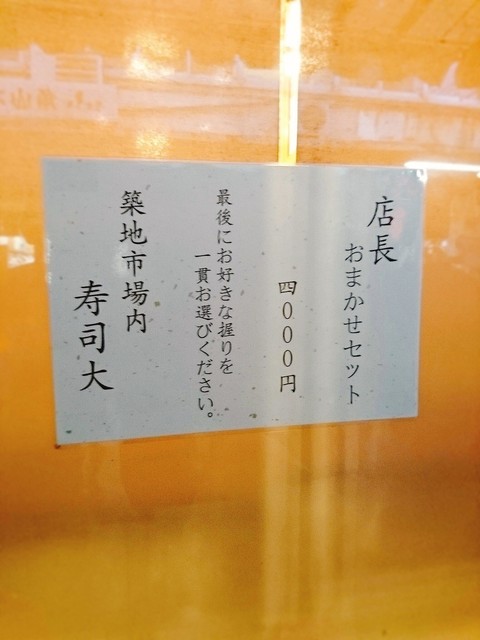 店長
おまかせセット
四〇〇〇円
最後にお好きな握りを
一貫お選びください。
築地市場内
寿司大